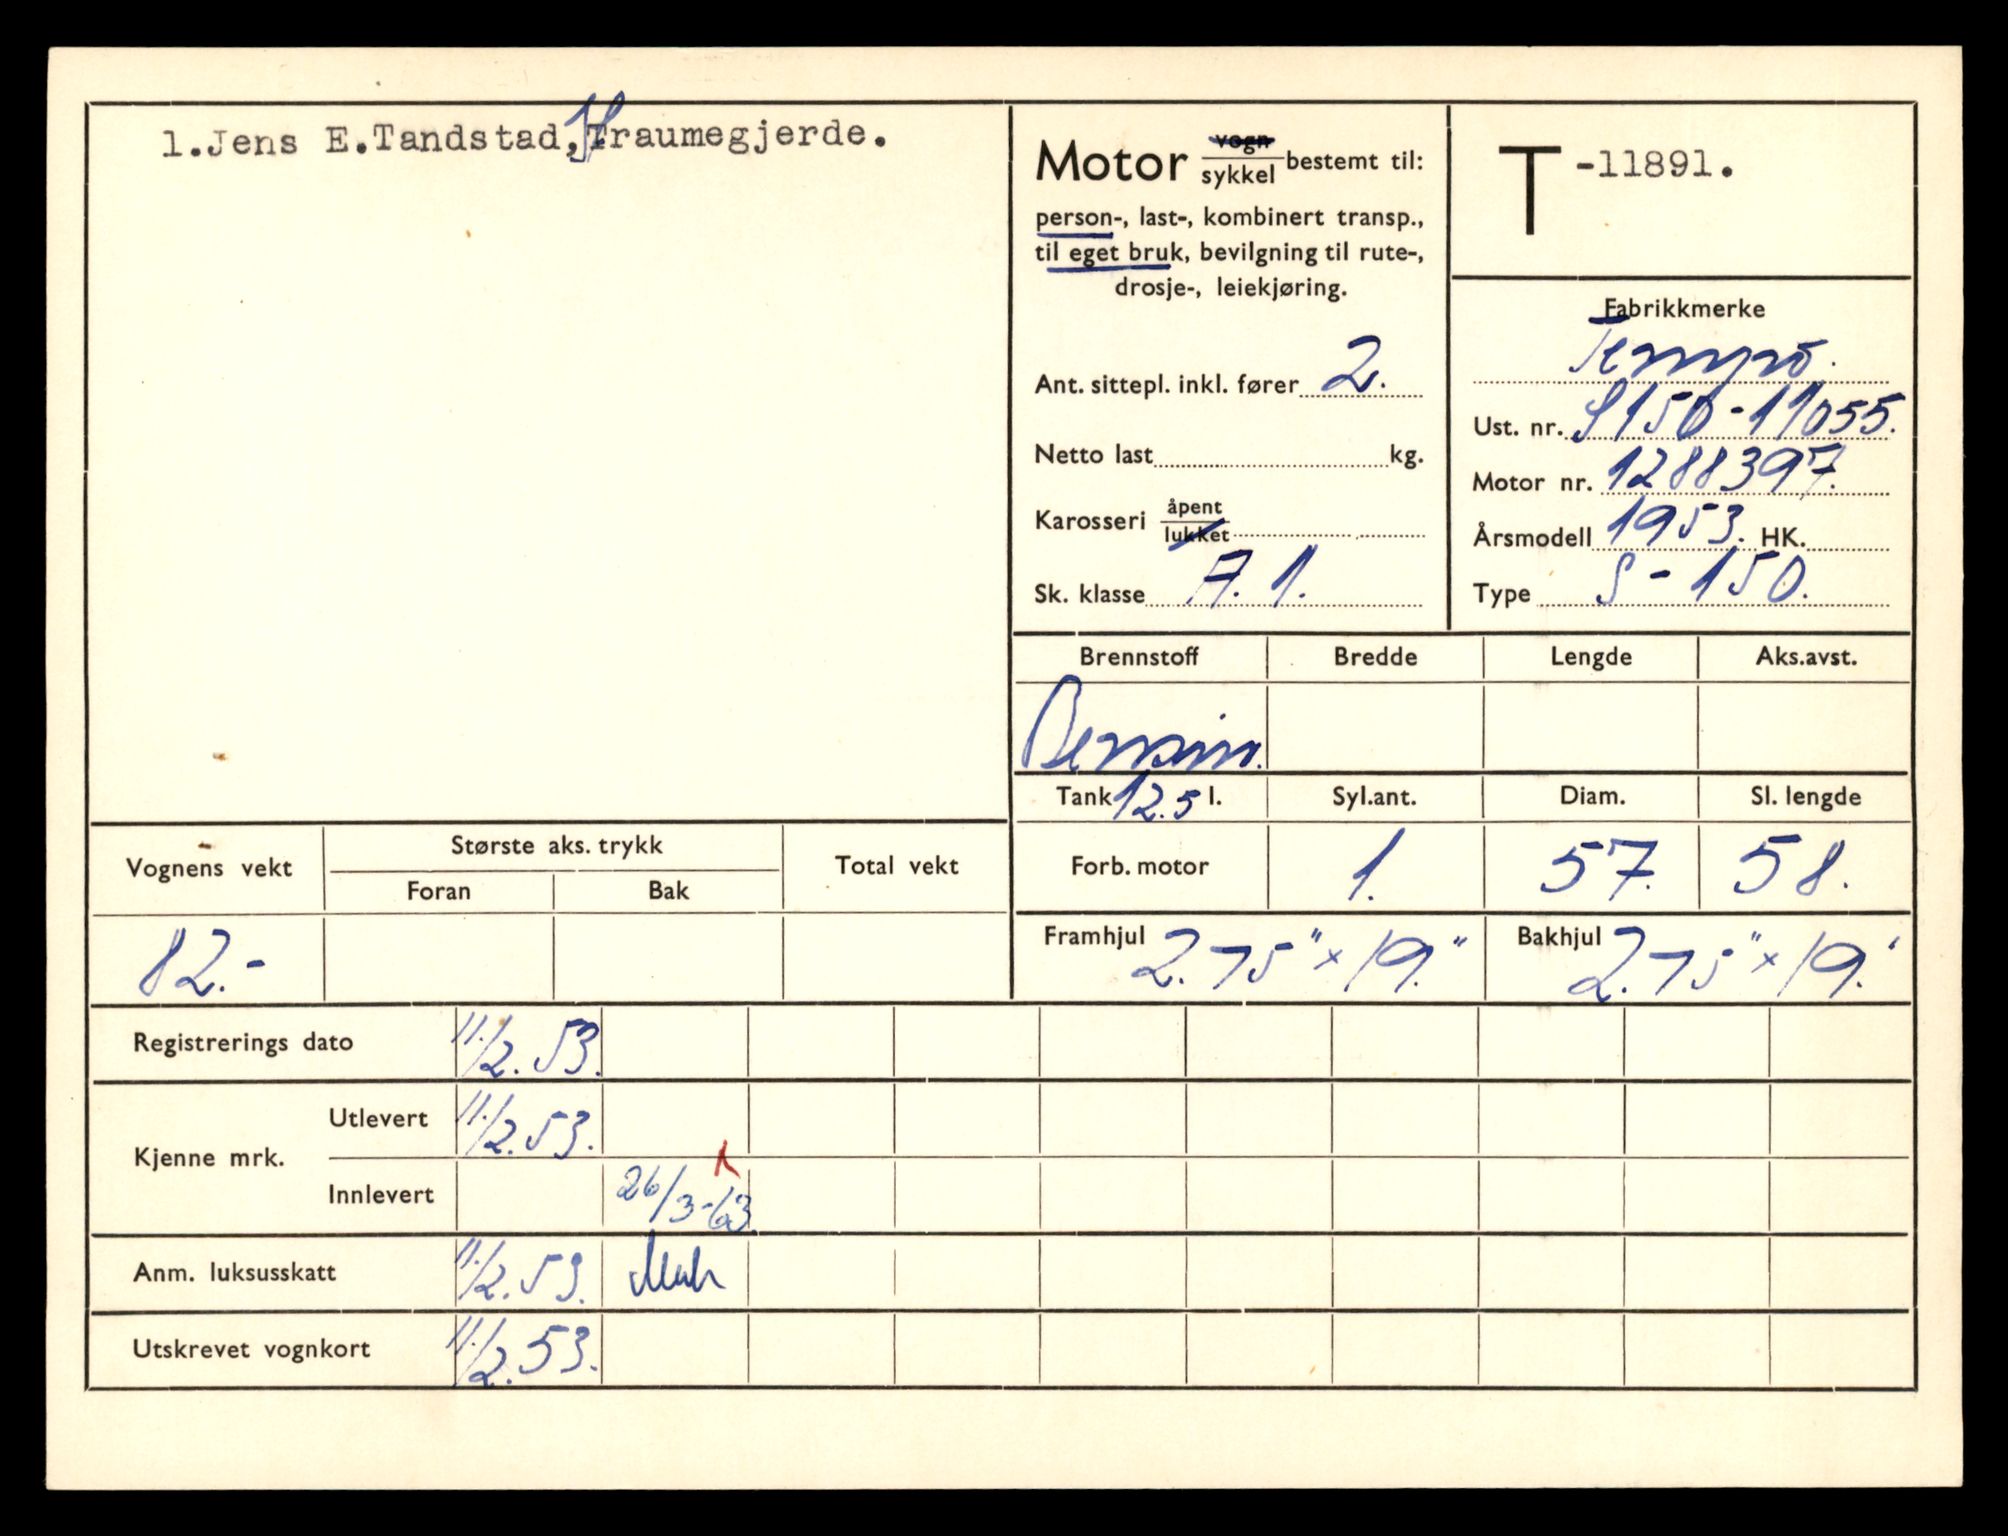 1.Jens E.Tandstad, Traumegjerde.
Motor vogn/sykkel bestemt til:
person-, last-, kombinert transp.,
til eget bruk, bevilgning til rute-,
drosje-, leiekjøring.
Ant. sittepl. inkl. fører 2.
Netto last kg.
Karosseri åpent/lukket
Sk. klasse A. 1.
T -11891.
Fabrikkmerke
Tempo.
Ust. nr. S150-11055.
Motor nr. 1288397.
Årsmodell 1953. HK.
Type S-150.
Brennstoff Bredde Lengde Aks.avst.
Bensin.
Tank 12.5 l. Syl.ant. Diam. Sl. lengde
Forb. motor 1. 57. 58.
Framhjul 2.75" x 19." Bakhjul 2.75" x 19.'
Vognens vekt Største aks. trykk Total vekt
Foran Bak
82.-
Registrerings dato 11/2.53.
Kjenne mrk. Utlevert 11/2.53.
Innlevert 26/3-63.
Anm. luksusskatt 11/2.53.
Utskrevet vognkort 11/2.53.